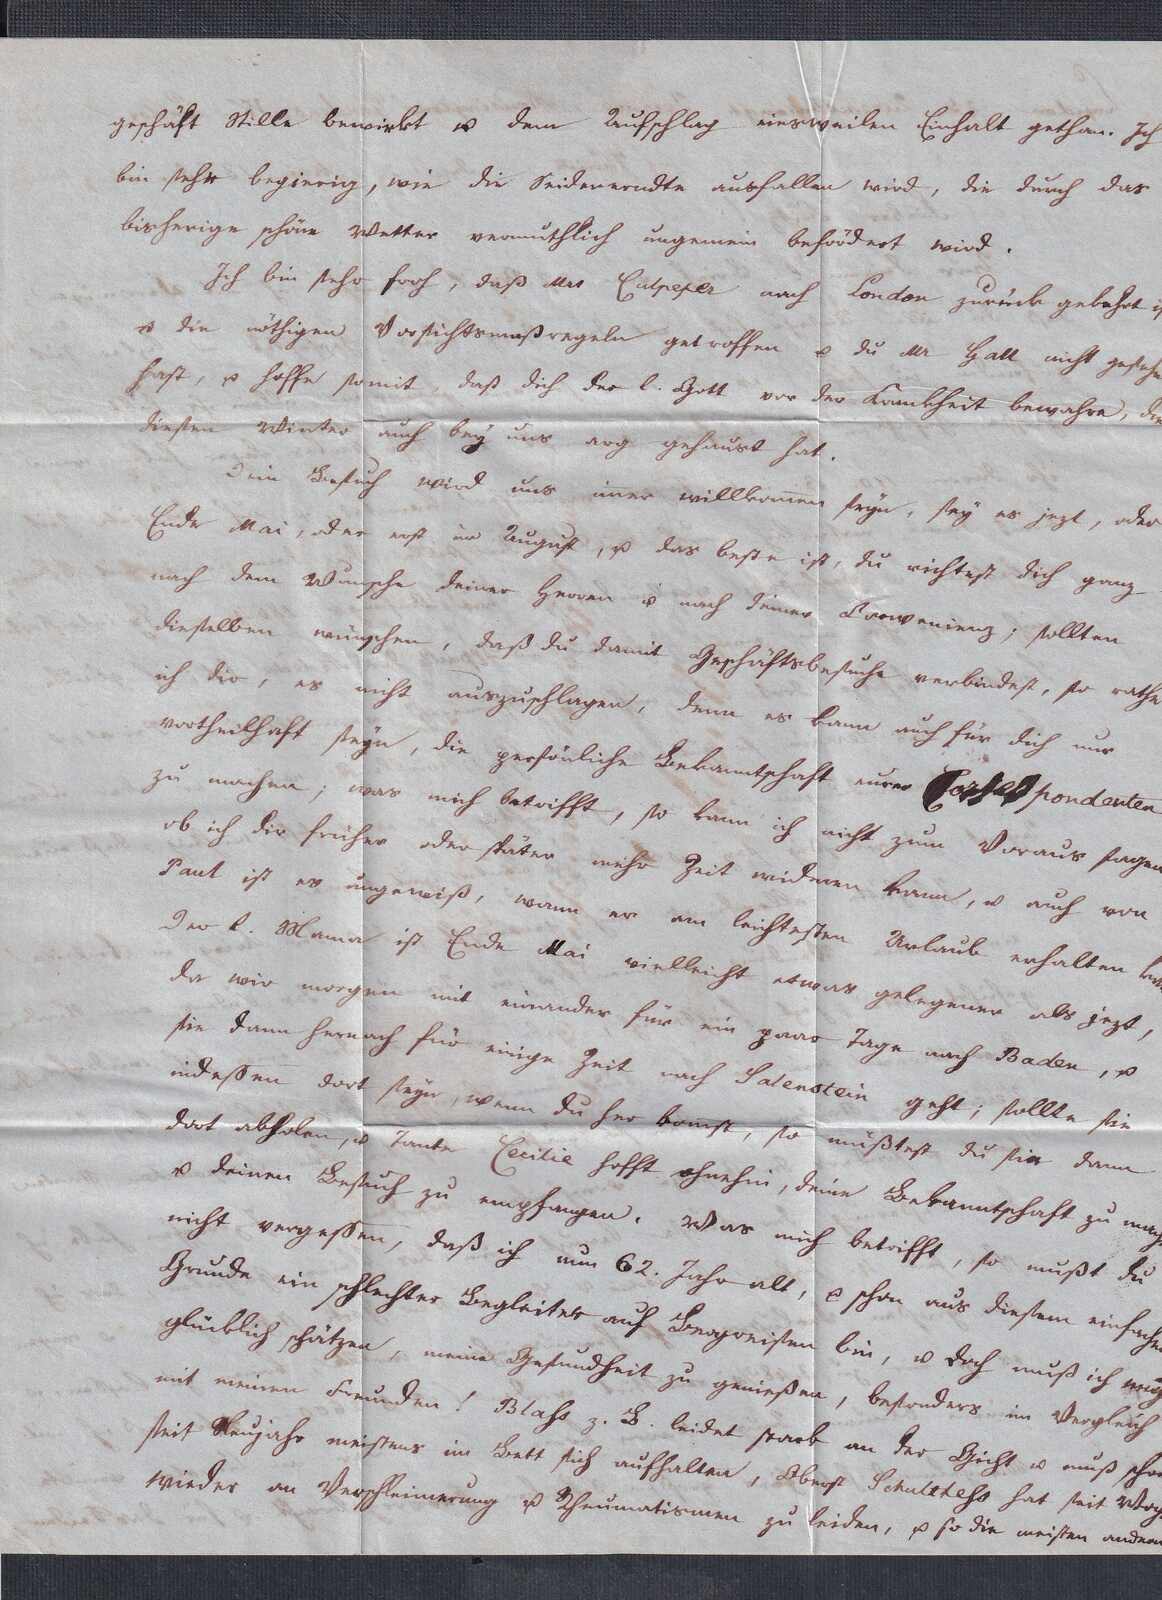 geschäft Stille bewirkt u dem Aufschlag einsweilen Einhalt gethan. Ich
bin sehr begierig, wie die Seidenerndte ausfallen wird, die durch das
bisherige schöne Wetter vermuthlich ungemein befördert wird.
Ich bin sehr froh, daß Mrs Culpeper nach London zurück gekehrt
u die nöthigen Vorsichtsmaßregeln getroffen u du Mr Hall nicht
hast, u hoffe somit, daß dich der l. Gott vor der Krankheit bewahre, die
diesen Winter auch bey uns arg gehaust hat.
Dein Besuch wird uns imer willkommen seyn, sey es jezt, oder
Ende Mai, oder erst im August, u das beste ist, du richtest dich ganz
nach dem Wunsche deiner Herren u nach deiner Convenienz; sollten
dieselben wünschen, daß du damit Geschäftsbesuche verbindest, so rathe
ich dir, es nicht auszuschlagen, denn es kann auch für dich nur
vortheilhaft seyn, die persönliche Bekanntschaft eurer Correspondenten
zu machen; was mich betrifft, so kann ich nicht zum Voraus sagen
ob ich dir früher oder später mehr Zeit widmen kann, u auch von
Paul ist es ungewiß, wann er am leichtesten Urlaub erhalten
Der l. Mama ist Ende Mai vielleicht etwas gelegener als jezt,
da wir morgen mit einander für ein paar Tage nach Baden, u
sie dann hernach für einige Zeit nach Salenstein geht; sollte sie
indessen dort seyn, wenn du her komst, so müßtest du sie dann
dort abholen, u Tante Cecilie hofft ohnehin, deine Bekanntschaft zu
u deinen Besuch zu empfangen. Was mich betrifft, so mußt du
nicht vergessen, daß ich nun 62. Jahr alt, u schon aus diesem einfachen
Grunde ein schlechter Begleiter auf Bergreisen bin, u doch muß ich mich
glücklich schätzen, meine Gesundheit zu genießen, besonders im Vergleich
mit meinen Freunden! Blass z. B. leidet stark an der Gicht u muß schon
seit Neujahr meistens im Bett sich aufhalten, Oberst Schulthess hat seit
wieder an Verschleimerung u Rheumatismen zu leiden, u so die meisten andern